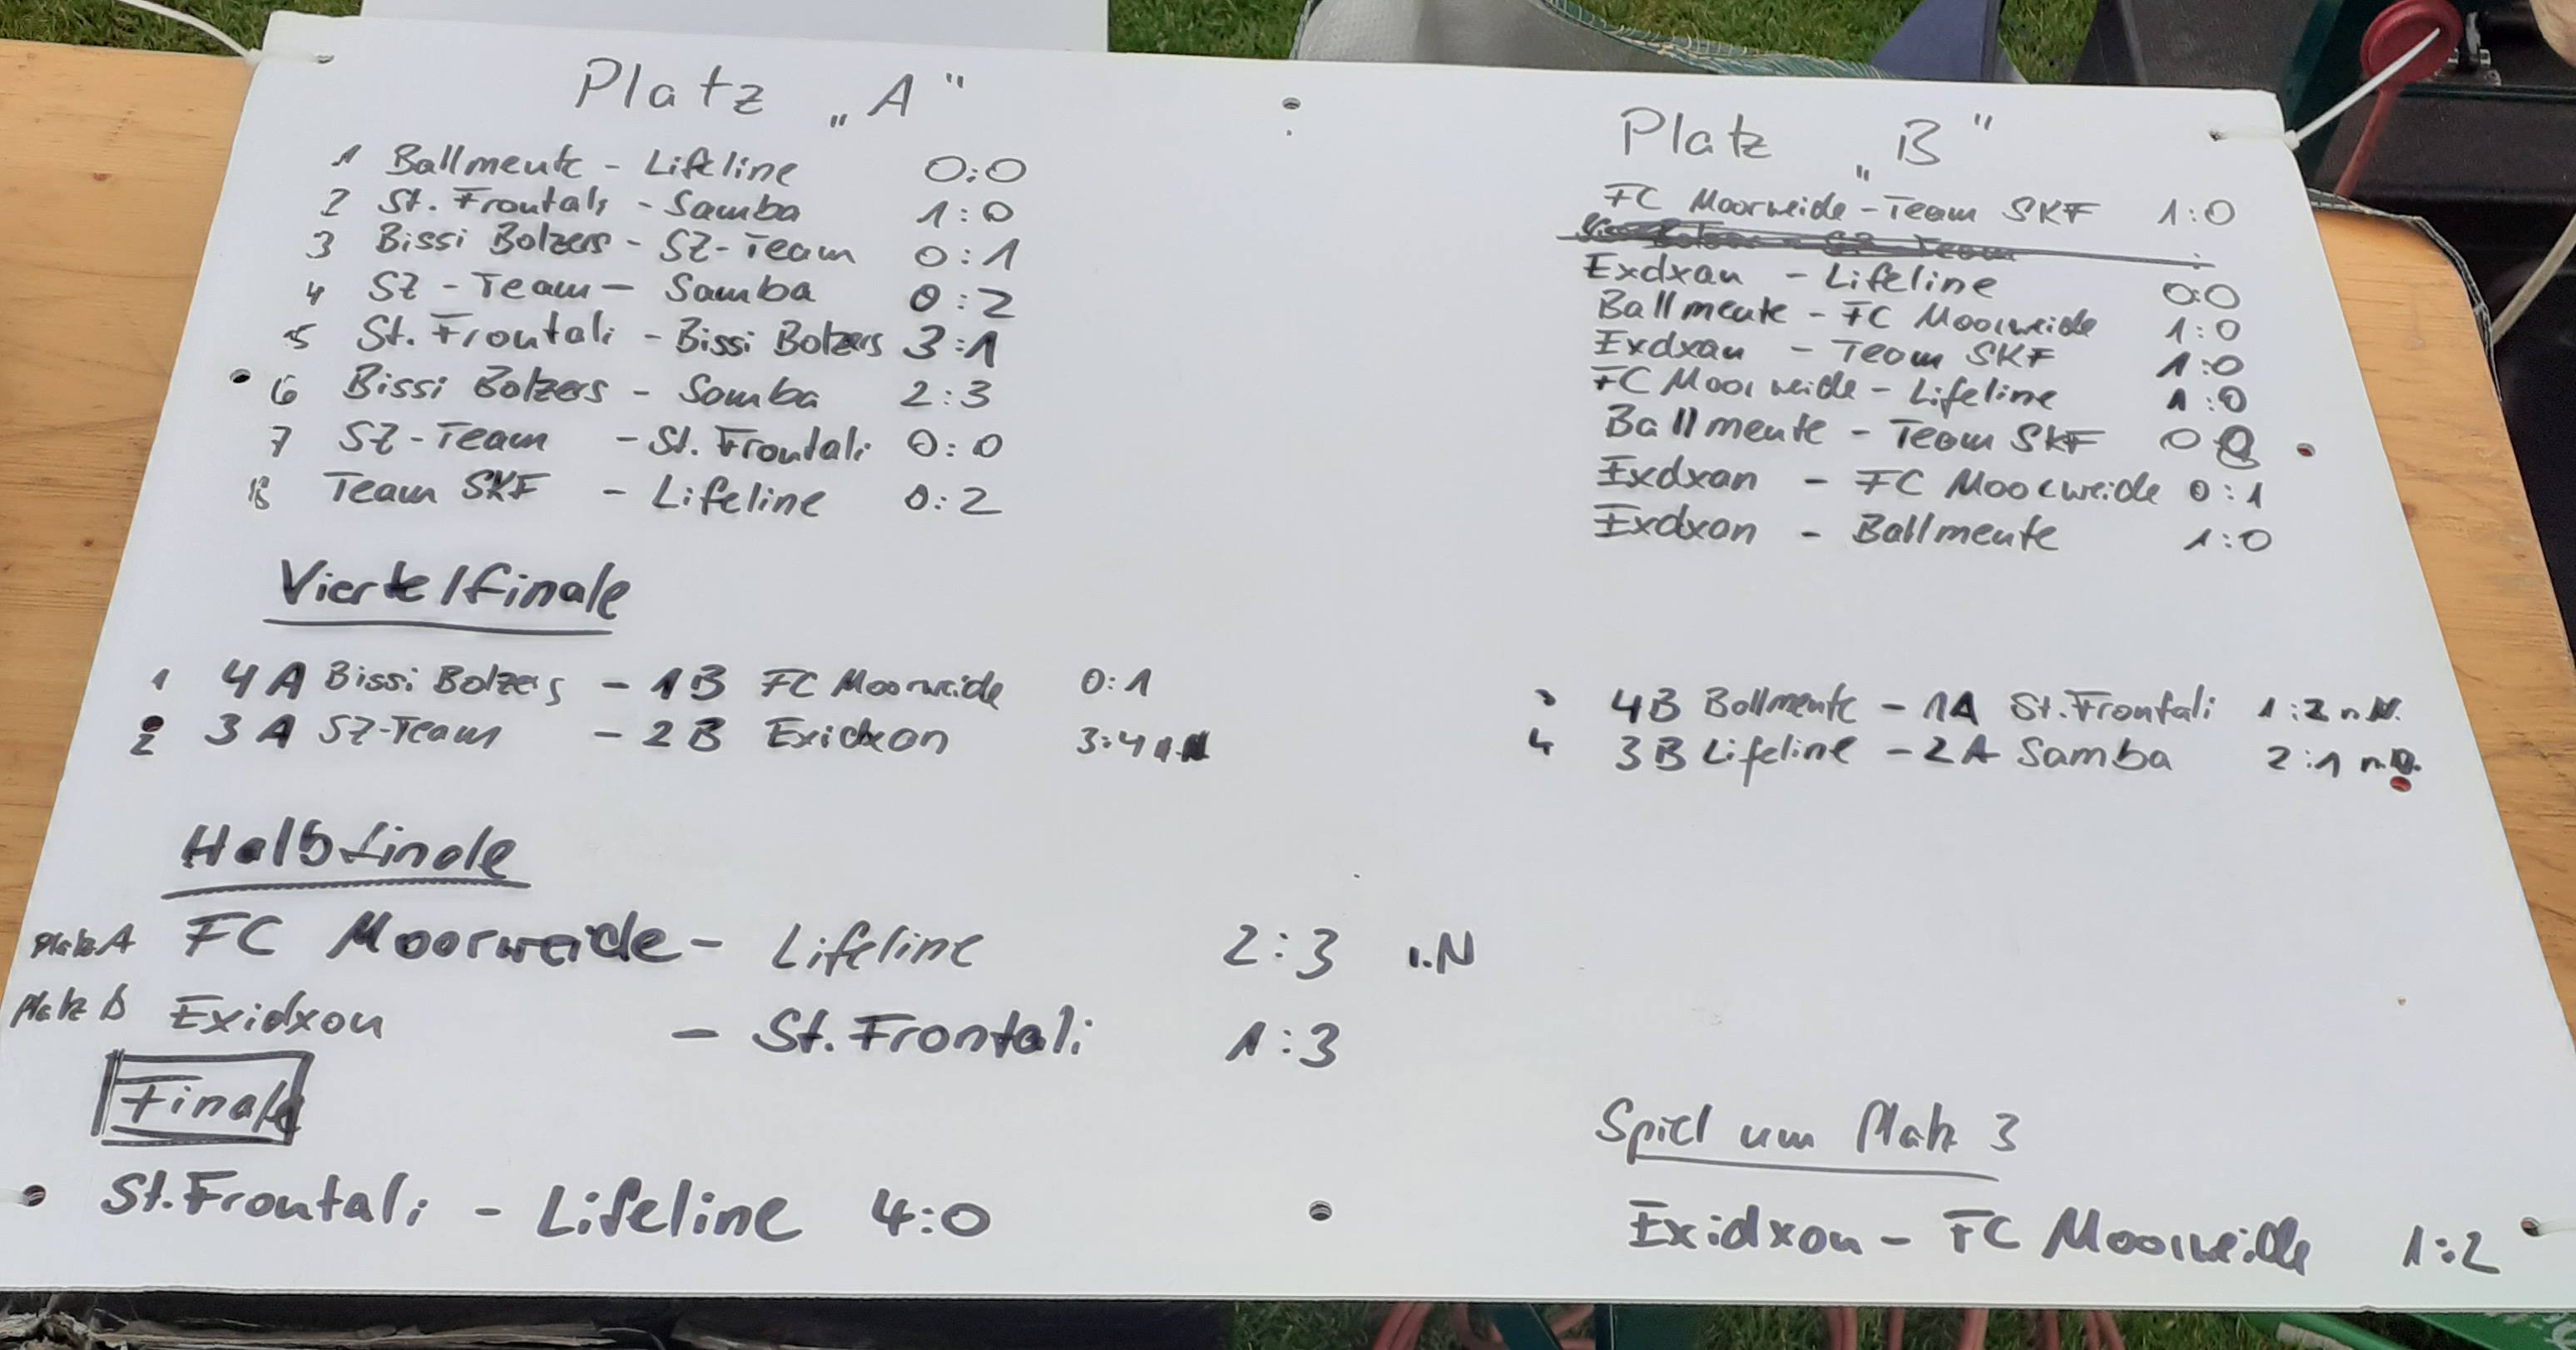 Platz „A"
1 Ballmeute - Lifeline 0:0
2 St. Frontali - Samba 1:0
3 Bissi Bolzers - SZ-Team 0:1
4 SZ-Team - Samba 0:2
5 St. Frontali - Bissi Bolzers 3:1
6 Bissi Bolzers - Samba 2:3
7 SZ-Team - St. Frontali 0:0
8 Team SKF - Lifeline 0:2
Platz „B"
FC Moorweide - Team SKF 1:0
Exdxan - Lifeline 0:0
Ballmeute - FC Moorweide 1:0
Exdxan - Team SKF 1:0
FC Moorweide - Lifeline 1:0
Ballmeute - Team SKF 0
Exdxan - FC Moorweide 0:1
Exdxon - Ballmeute 1:0
Viertelfinale
1 4A Bissi Bolzers - 1B FC Moorweide 0:1
2 3A SZ-Team - 2B Exidxon 3:4
4B Ballmeute - 1A St. Frontali 1:2 n.N.
4 3B Lifeline - 2A Samba 2:1
Halbfinale
Platz A FC Moorweide - Lifeline 2:3
Platz B Exidxon - St. Frontali 1:3
Finale
St. Frontali - Lifeline 4:0
Spiel um Platz 3
Exidxon - FC Moorweide 1:2